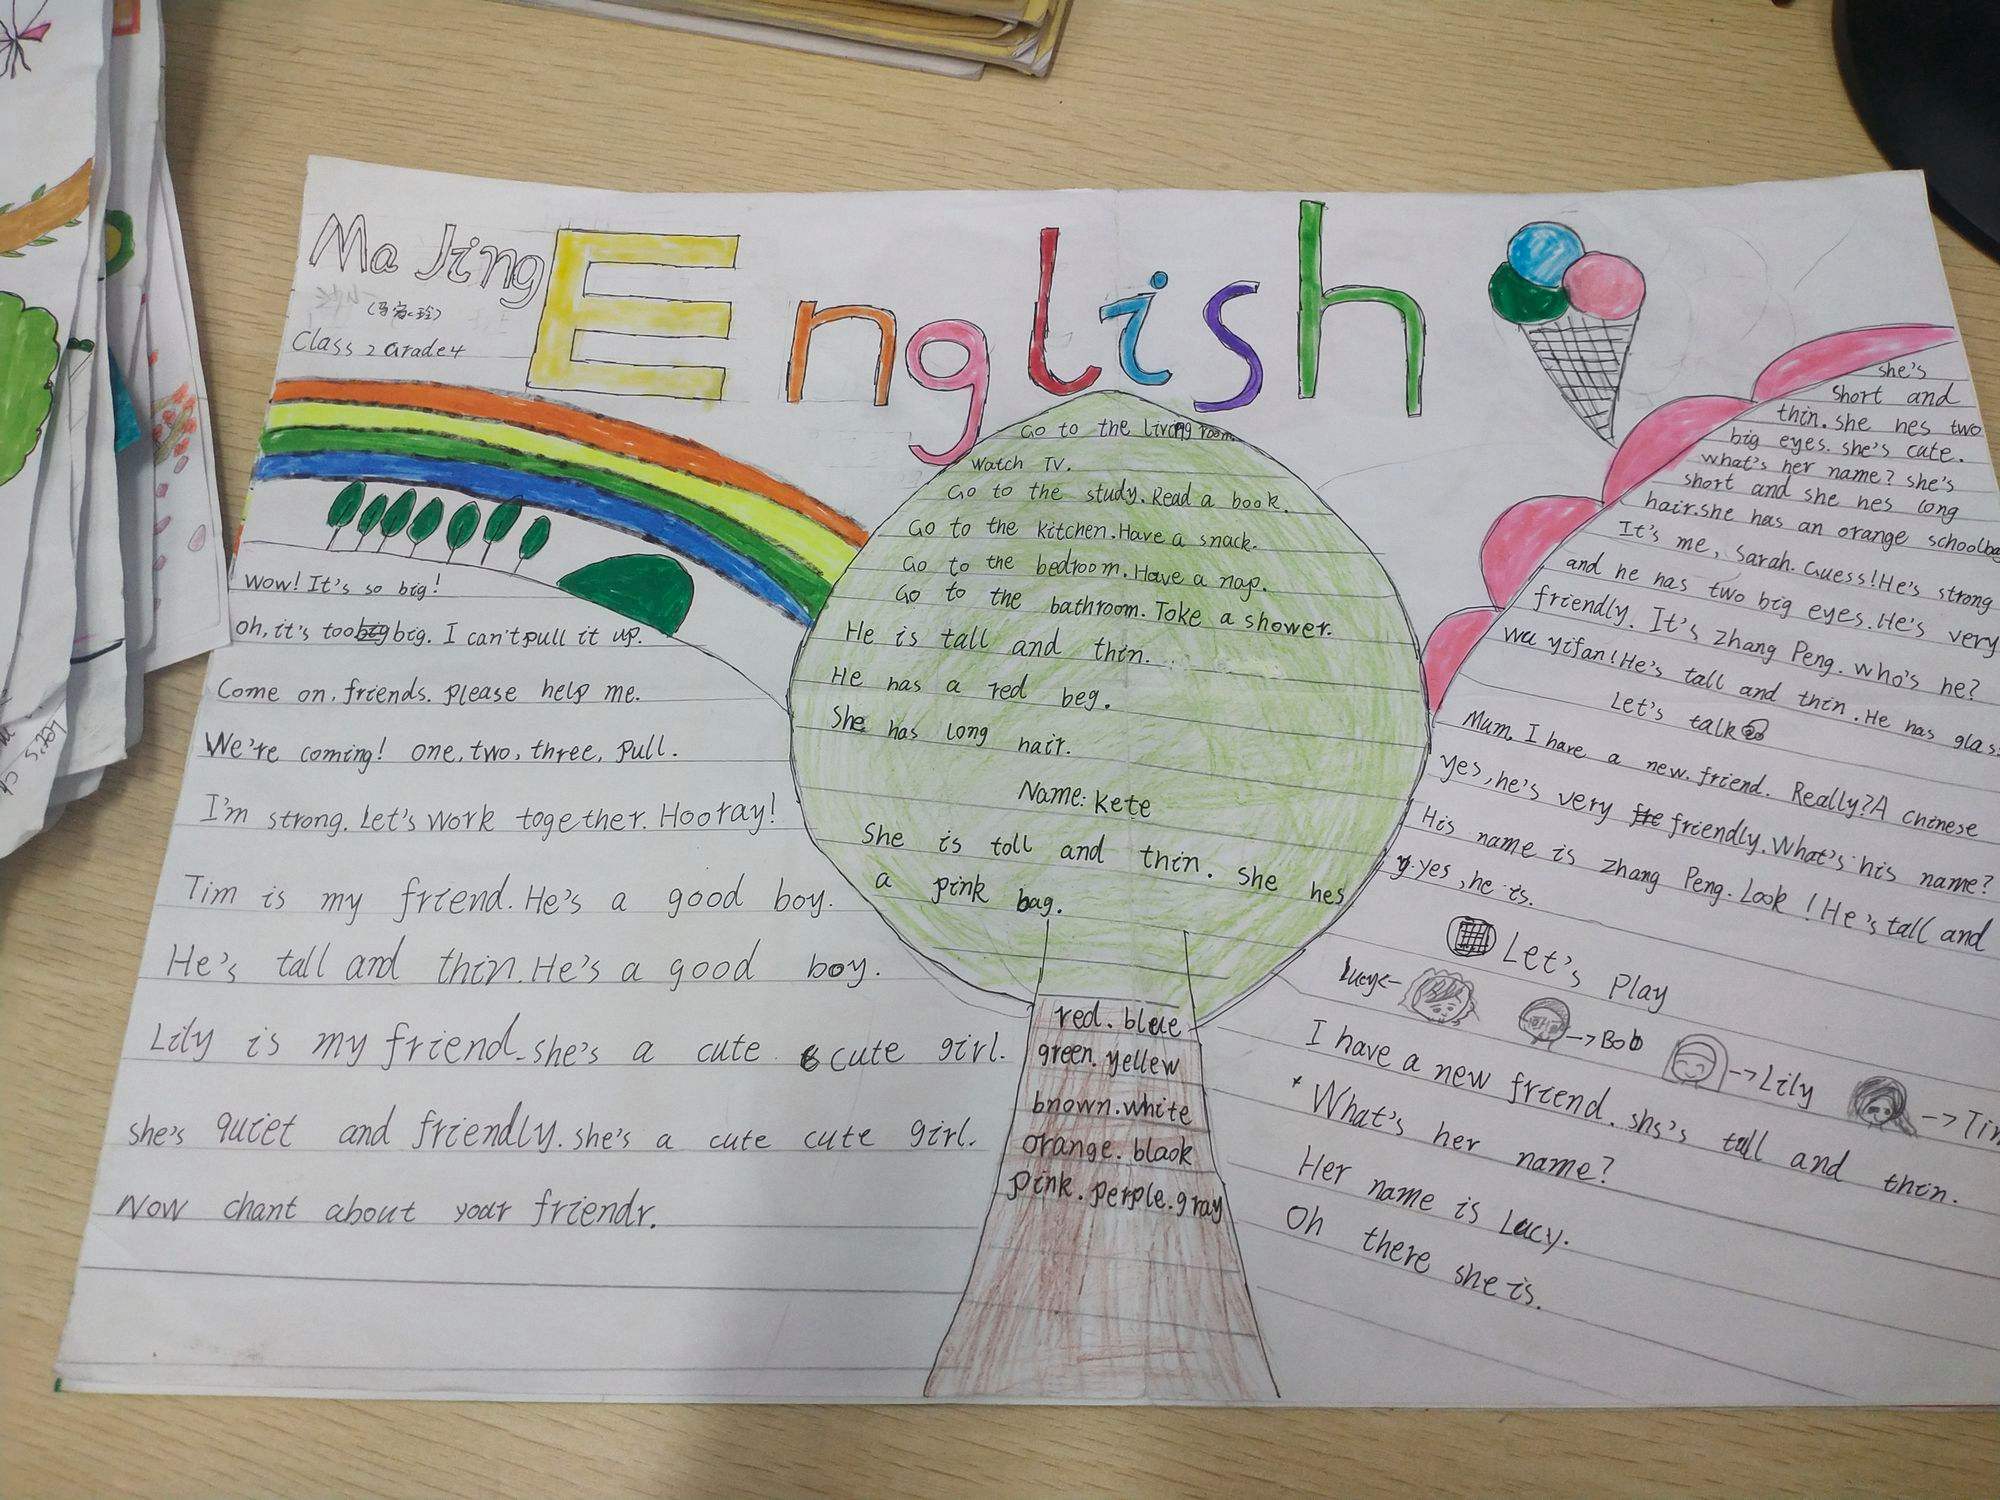 Ma Jing
English
Class 2 Grade 4
wow! It's so big!
oh, it's too big big. I can't pull it up.
Come on, friends. please help me.
We're coming! one, two, three, pull.
I'm strong. Let's work together. Hooray!
Tim is my friend. He's a good boy.
He's tall and thin. He's a good boy.
Lily is my friend. she's a cute cute girl.
she's quiet and friendly. she's a cute cute girl.
Now chant about your friendr.
Go to the living room.
Watch TV.
Go to the study. Read a book.
Go to the kitchen. Have a snack.
Go to the bedroom. Have a nap.
Go to the bathroom. Toke a shower.
He is tall and thin.
He has a red beg.
She has long hair.
Name: Kete
She is toll and thin. She hes
a pink bag.
red. blue
green. yellew
brown. white
orange. blaok
pink. perple. gray
she's
short and
thin. she hes two
big eyes. she's cate.
what's her name? she's
short and she hes long
hair. she has an orange schoolba
It's me, Sarah. Guess! He's strong
and he has two big eyes. He's very
friendly. It's zhang Peng. who's he?
wu yifan! He's tall and thin. He has glas
Let's talk
Mum, I have a new friend. Really? A chinese
yes, he's very fre friendly. What's his name?
His name is zhang Peng. Look! He's tall and
y. yes, he is.
Let's Play
Lucy
Bob
Lily
Tim
I have a new friend. shs's tall and thin.
What's her name?
Her name is Lucy.
Oh there she is.